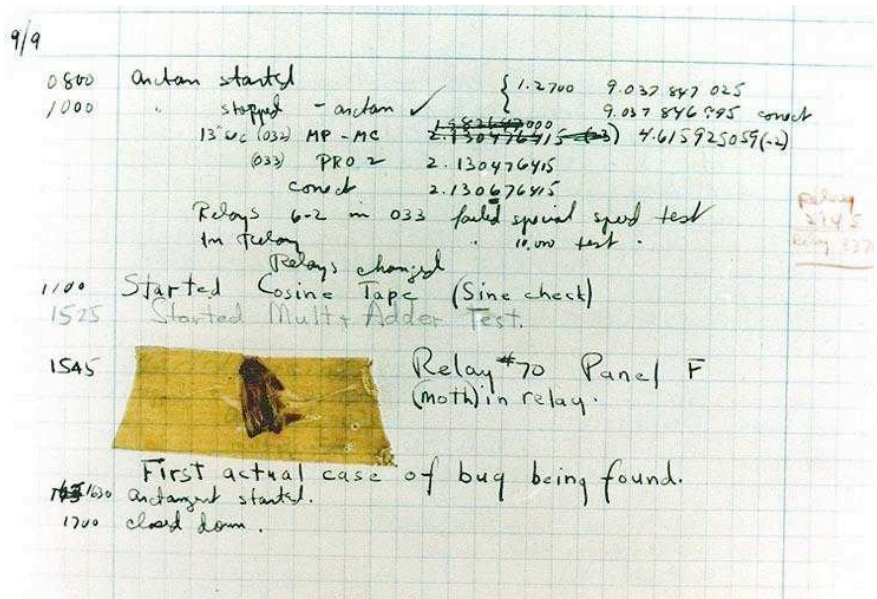 9/9
0800 antan started { 1.2700 9.037 847 025
1000 " stopped - antan ✓ 9.037 846 995 conect
13"uc (032) MP - MC 2.130476415 (-3) 4.615925059(-2)
(033) PRO 2 2.130476415
conect 2.130676415
Relays 6-2 in 033 failed special speed test
In Relay " 10,000 test .
Relay
2145
Relay 337
Relays changed
1100 Started Cosine Tape (Sine check)
1525 Started Mult + Adder Test.
1545 Relay #70 Panel F
(moth) in relay.
First actual case of bug being found.
1630 antangent started.
1700 closed down .